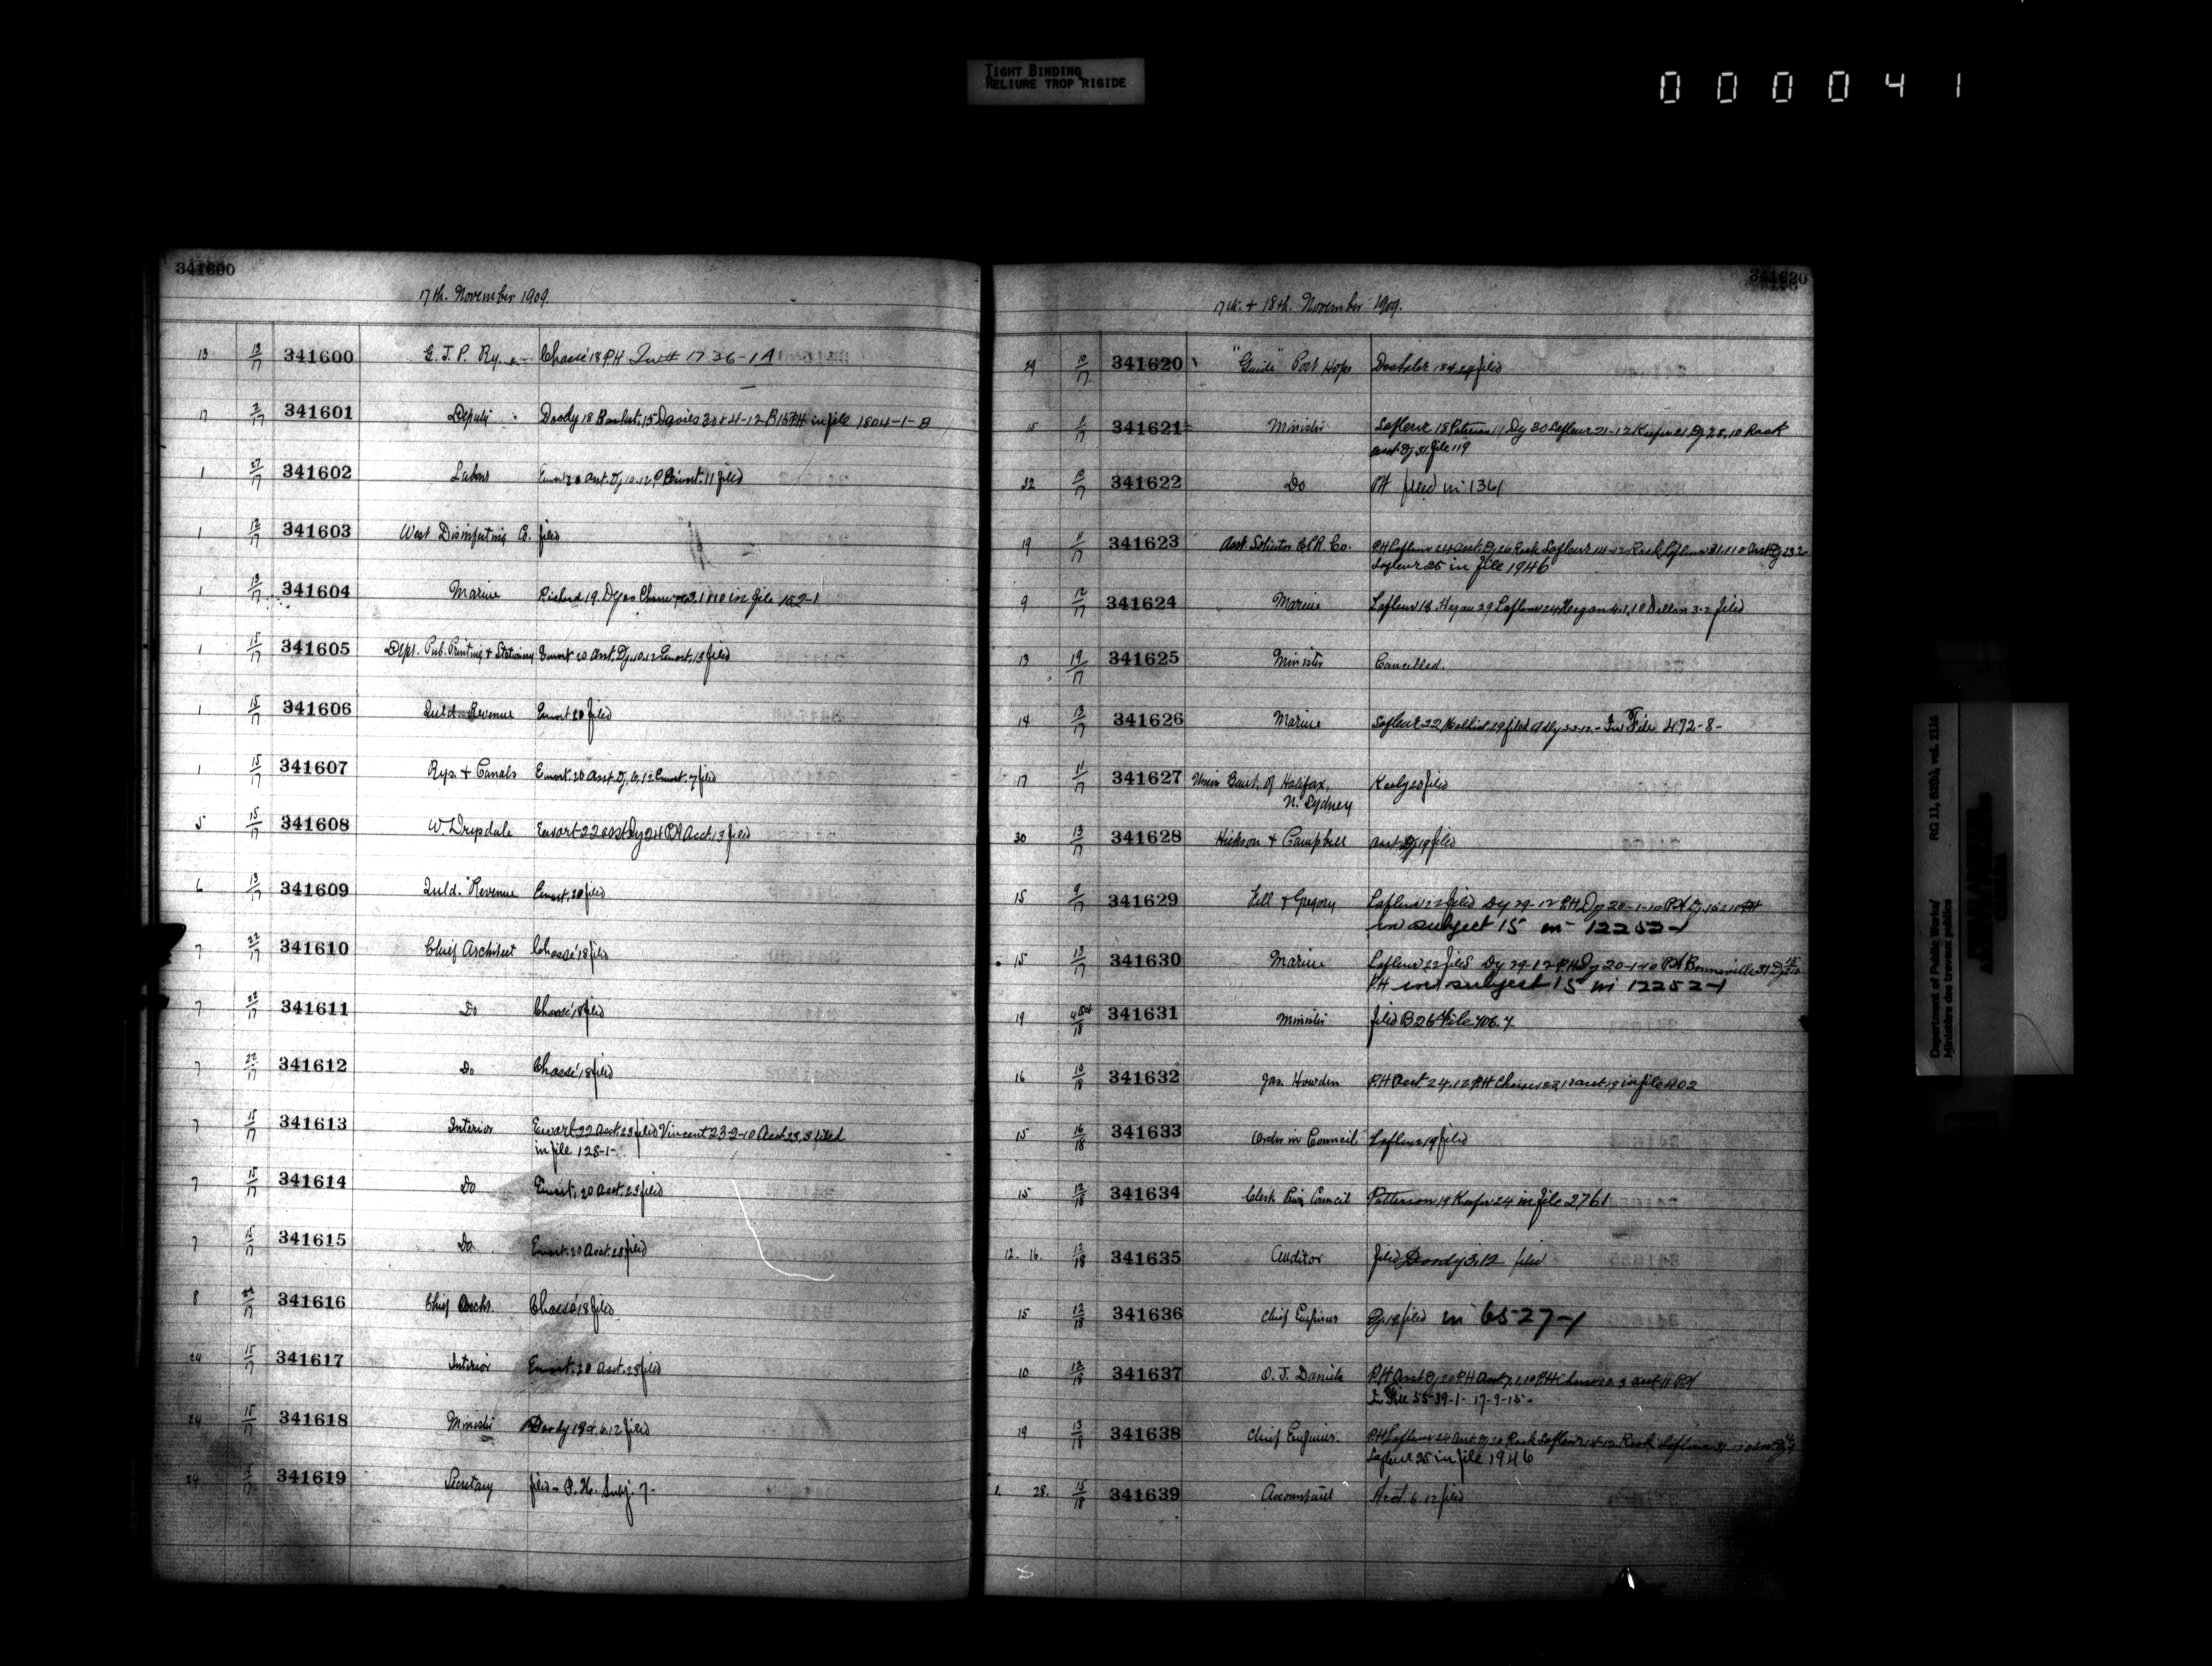 TIGHT BINDING
RELIURE TROP RIGIDE
000041
341600
17th. November 1909.
13 13/17 341600 G. T. P. Ry. Chassé 18 P.H 1736-1A
17 2/17 341601 Deputy Doody 18 15 Davies 30 & 4-12 in file 1804-1-B
1 27/17 341602 Labour Ewart 20 Asst. Dy. 10.12 Ewart. 11 filed
1 12/17 341603 West Disinfecting Co. filed
1 13/17 341604 Marine Richard 19. in file 152-1
1 15/17 341605 Dept. Pub. Printing & Stationery Ewart 20 Asst. Dy. 10.12 Ewart. 13 filed
1 15/17 341606 Inld. Revenue Ewart 20 filed
1 15/17 341607 Rys. & Canals Ewart. 20 Asst. Dy. 6.12 Ewart. 7 filed
5 15/17 341608 W. Drysdale Ewart 22 Asst Dy 24 P.H Acct. 13 filed
6 13/17 341609 Inld. Revenue Ewart. 20 filed
7 22/17 341610 Chief Architect Chassé 18 filed
7 22/17 341611 Do Chassé 18 filed
7 22/17 341612 Do Chassé 18 filed
7 15/17 341613 Interior Ewart 22 Acct. 23 filed Vincent 23-2-10 Acct 23.3 filed
in file 128-1-
7 15/17 341614 Do Ewart. 20 Acct. 23 filed
7 15/17 341615 Do Ewart. 20 Acct. 23 filed
8 22/17 341616 Chief Archt. Chassé 18 filed
24 15/17 341617 Interior Ewart. 20 Acct. 23 filed
24 15/17 341618 Minister Doody 19 & 6.12 filed
24 15/17 341619 Secretary filed - P. H. Subj. 7-
341620
17th. & 18th. November 1909.
29 10/17 341620 "Guide" Port Hope filed
15 341621 Minister Lafleur 18 Dy 30 Lafleur 21-12 Keefer 21 Rask
Asst. Dy 31. file 119
22 10/17 341622 Do PH filed in 1361
19 11/17 341623 Asst Solicitor C.P.R. Co. P.H Lafleur 24 Asst. Dy 26 Rask Lafleur 14-12 Rask Lafleur 31.1.10 Asst Dy 23.2
Lafleur 25 in file 1946
9 12/17 341624 Marine Lafleur 18. Hegan 29 Lafleur 24 Hegan 4.1.10 Dillon 3.2 filed
13 19/17 341625 Minister Cancelled.
14 13/17 341626 Marine Lafleur 22 filed In File 492-8-
17 11/17 341627 Union Bank. of Halifax,
N. Sydney filed
30 13/17 341628 Hickson & Campbell Asst. Dy. 19 filed
15 9/17 341629 & Gregory Lafleur 22 filed Dy 29-12 P.H Dy 20-1-10 P.H
in subject 15 in 12252-1
15 13/17 341630 Marine Lafleur 22 filed Dy 29-12 P.H Dy 20-1-10 P.H Bonneville 31
P.H in subject 15 in 12252-1
19 4 Oct/18 341631 Minister filed B26 File 406.7
16 10/18 341632 Jas. Howden P.H Acct 24.12 P.H in file 1402
15 16/18 341633 Order in Council Lafleur 19 filed
15 12/18 341634 Clerk Privy Council Patterson 19 Keefer 24 in file 2761
12. 16. 12/18 341635 Auditor filed Doody 3.12 filed
15 12/18 341636 Chief Engineer Dy. 19 filed in 6527-1
10 12/18 341637 O. J. Daniels P.H Asst Dy 20 P.H
In File 55-39-1- 17-9-15-
19 13/18 341638 Chief Engineer. P.H Lafleur 24 Asst. Dy 26 Rask Lafleur 14-12 Rask Lafleur 31-1-10
Lafleur 25 in file 1946
1. 28. 15/18 341639 Accountant Acct. 6.12 filed
Department of Public Works/ RG 11, B2(b), vol. 2116
Ministère des travaux publics